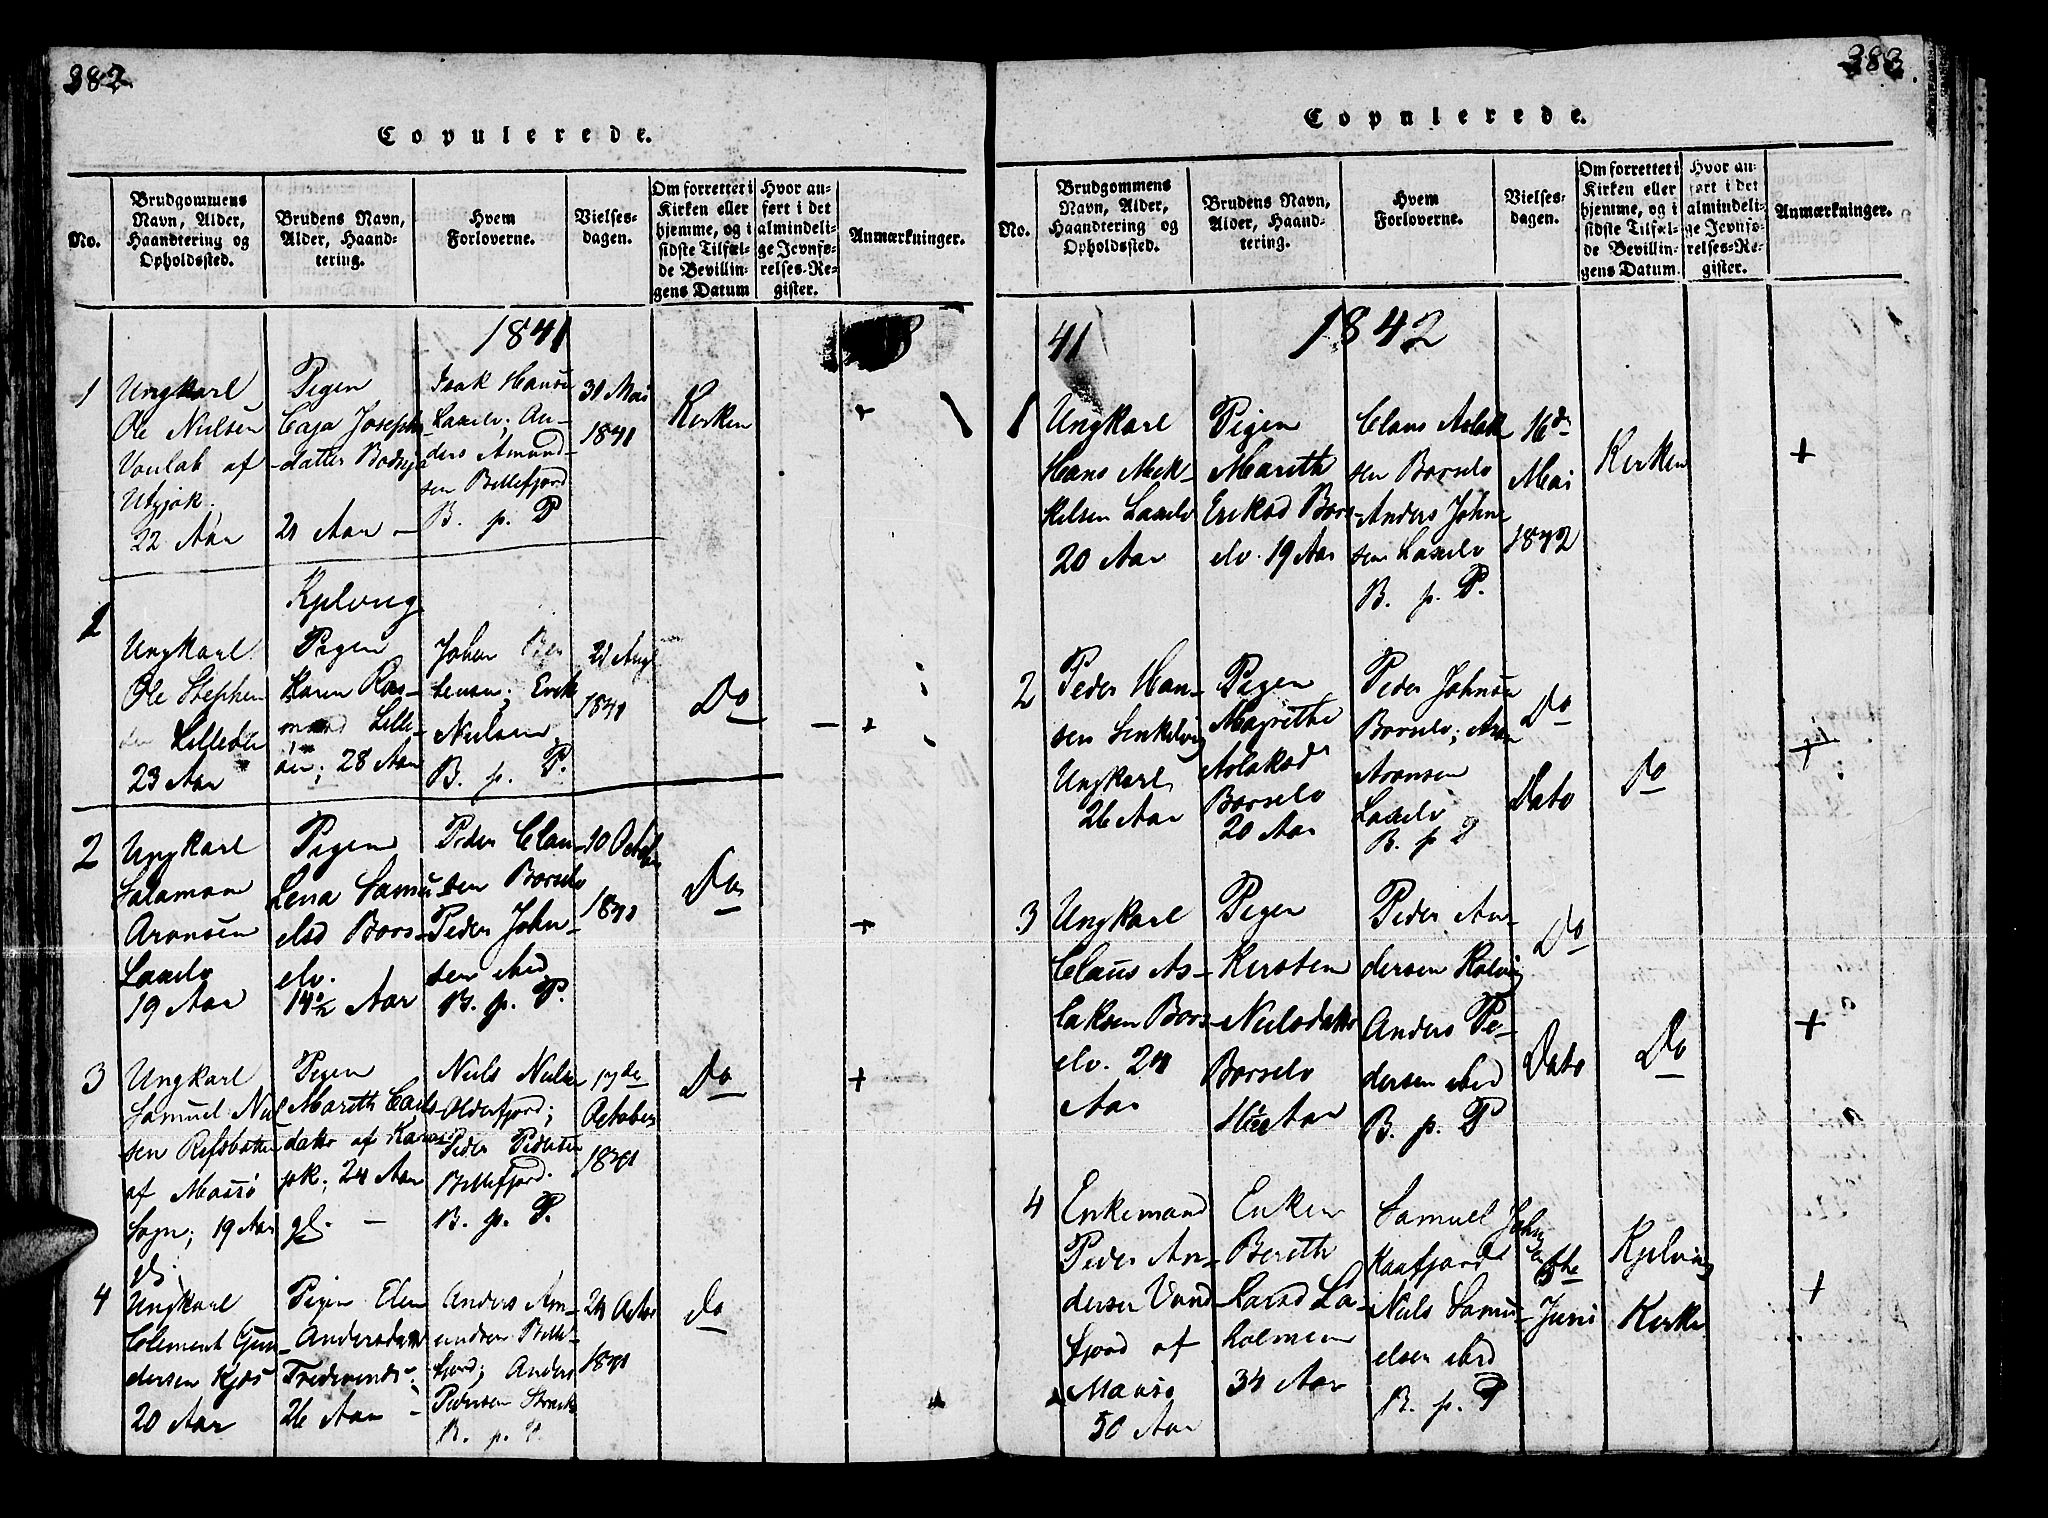 382
Copulerede.
No.
Brudgommens
Navn, Alder,
Haandtering og
Opholdssted.
Brudens Navn,
Alder, Haand-
tering.
Hvem
Forloverne.
Vielses-
dagen.
Om forrettet i
Kirken eller
hjemme, og i
sidste Tilfæl-
de Bevillin-
gens Datum
Hvor an-
ført i det
almindeli-
ge Jevnfø-
relses-Re-
gister.
Anmærkninger.
1841
1
Ungkarl
Ole Nielsen
af
Utzjok.
22 Aar
Pigen
Caja Josephs
datter
21 Aar –
Isak Hansen
Laxelv; An-
ders Amund-
sen Billefjord
B. p. P
31 Mai
1841
Kirken
+
Kjelvig
1
Ungkarl
Ole Stephen
23 Aar
Pigen
Karen Ras-
Lille-
28 Aar
Johan
Erik
Nielsen
B. p. P.
21 Aug
1841
Do
+
2
Ungkarl
Salamon
Aronsen
Laxelv
19 Aar
Pigen
Lena Samu
elsd Bors-
elv.
14½ Aar
Peder Clau-
sen Borselv
Peder John-
sen ibid
B. p. P.
10 October
1841
Do
+
3
Ungkarl
Samuel Niel
sen Refsbotten
af Maasø
Sogn; 19 Aar
gl.
Pigen
Marith Carls
datter af Karas
jok; 24 Aar
gl. –
Niels Nielse
Olderfjord;
Peder Pedersen
Billefjord.
B. p. P.
17de
October
1841
Do
+
4
Ungkarl
Clement Gun
dersen Kjæs
20 Aar
Pigen Elen
Andersdatter
26 Aar –
Anders Am-
undsen Bille-
fjord; Anders
Pedersen
B. p. P.
24 October
1841
Do
383.
Copulerede.
No.
Brudgommens
Navn, Alder,
Haandtering og
Opholdssted.
Brudens Navn,
Alder, Haand-
tering.
Hvem
Forloverne.
Vielses-
dagen.
Om forrettet i
Kirken eller
hjemme, og i
sidste Tilfæl-
de Bevillin-
gens Datum.
Hvor an-
ført i det
almindeli-
ge Jevnfø-
relses-Re-
gister.
Anmærkninger.
41
1842
1
Ungkarl
Hans Mik-
kelsen Laxelv
20 Aar
Pigen
Mareth
Eriksd Bors-
elv. 19 Aar
Claus Aslak
sen Borselv
Anders John-
sen Laxelv
B. p. P.
16de
Mai
1842
Kirken
+
2
Peder Han-
sen
Ungkarl
26 Aar
Pigen
Magrethe
Aslaksd
Borselv
20 Aar
Peder Johnsen
Borselv; Aron
Aronsen
Laxelv
B. p P
Do
Dato
Do
+
3
Ungkarl
Claus As-
laksen Bors-
elv. 24
Aar
Pigen
Kirsten
Nielsdatter
Borselv
Aar
Peder An-
dersen
Anders Pe-
dersen ibid
B. p. P
Do
Dato
Do
+
4
Enkemand
Peder An-
dersen
fjord af
Maasø
50 Aar
Enken
Bereth
Larsd La-
holmen
34 Aar
Samuel Johnsen
Kaafjord
Niels Samu-
elsen ibid
B. p. P
Juni
Kjelvig
Kirke
+